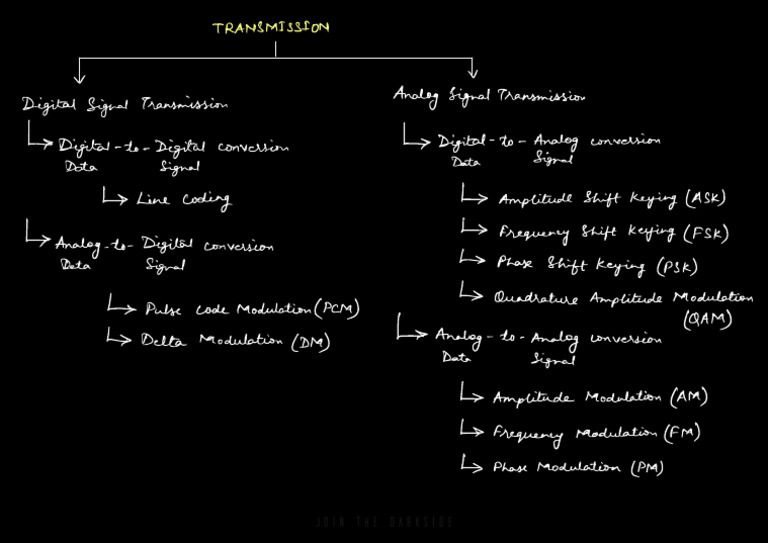 TRANSMISSION
Digital Signal Transmission
Digital-to-Digital conversion
Data Signal
Line Coding
Analog-to-Digital conversion
Data Signal
Pulse Code Modulation (PCM)
Delta Modulation (DM)
Analog Signal Transmission
Digital-to-Analog conversion
Data Signal
Amplitude Shift Keying (ASK)
Frequency Shift Keying (FSK)
Phase Shift Keying (PSK)
Quadrature Amplitude Modulation
(QAM)
Analog-to-Analog conversion
Data Signal
Amplitude Modulation (AM)
Frequency Modulation (FM)
Phase Modulation (PM)
JOIN THE DARKSIDE